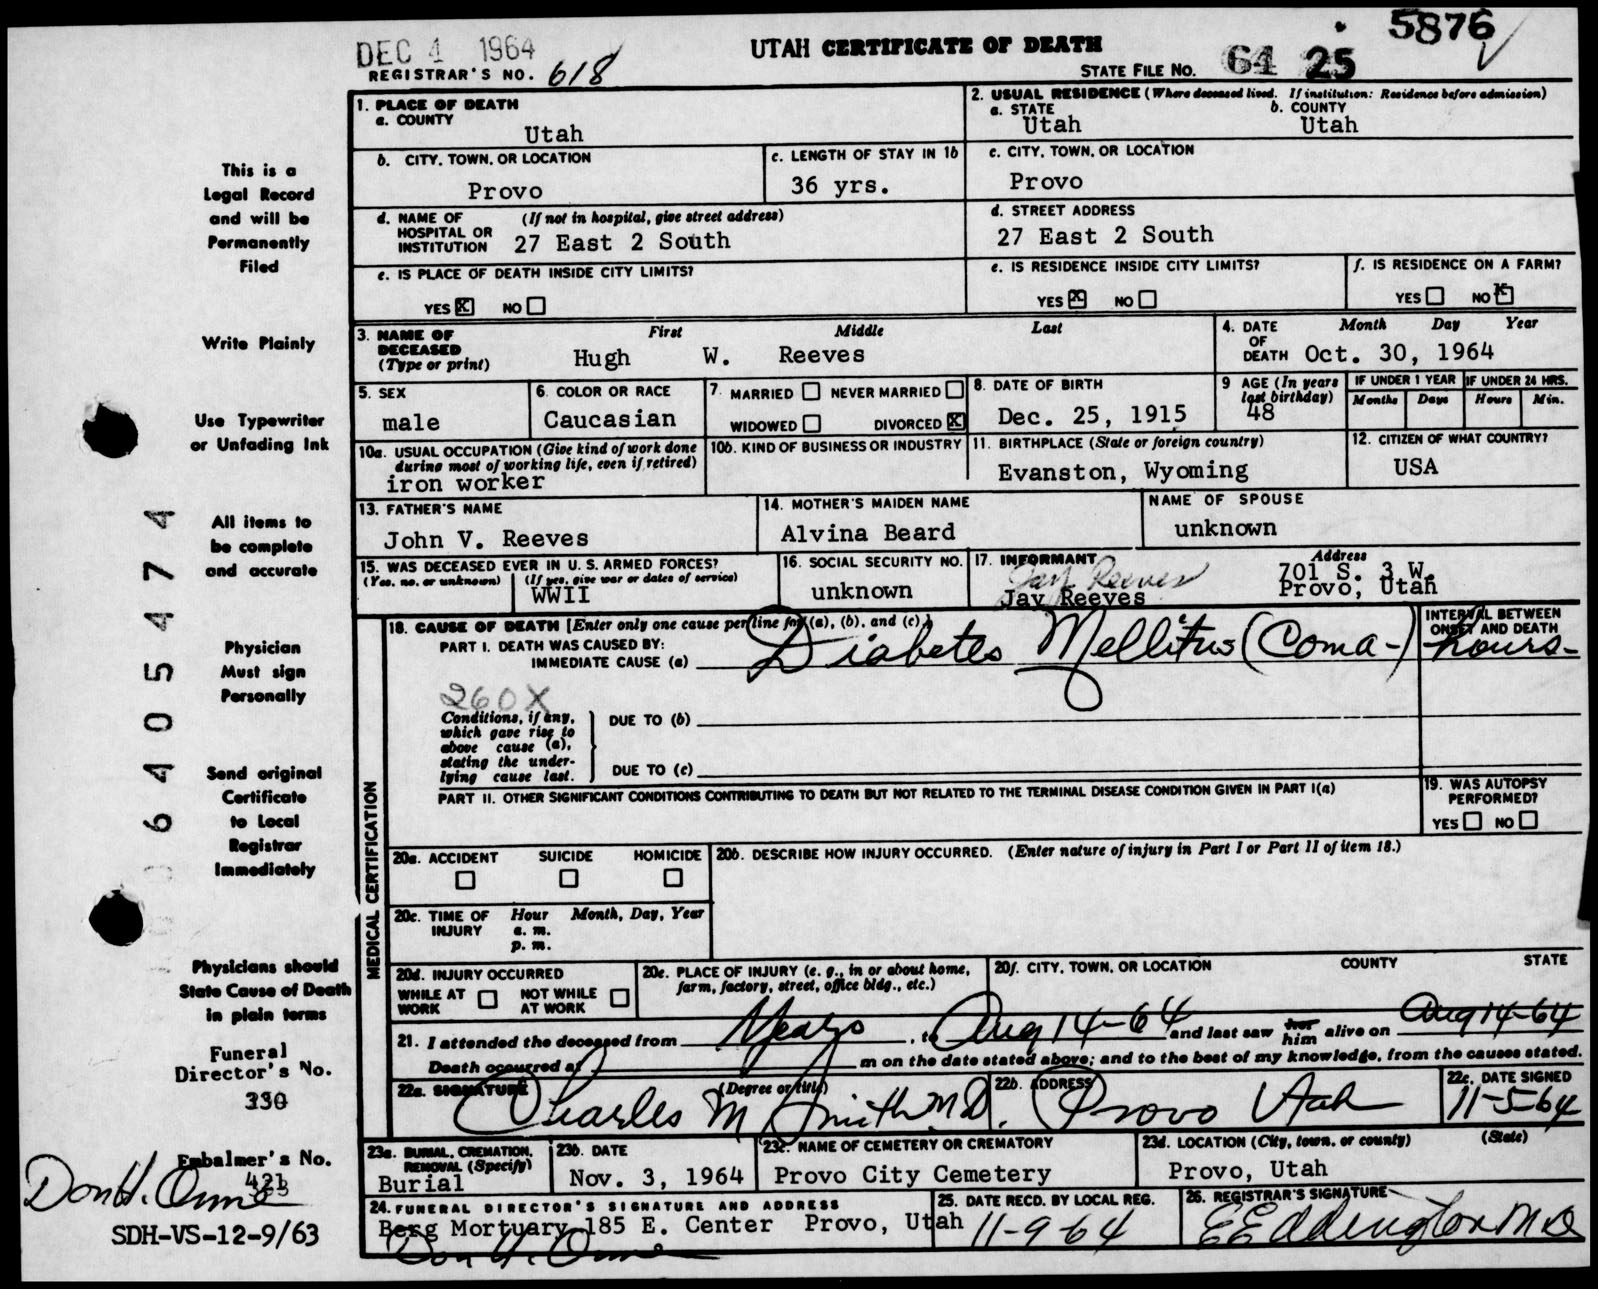 5876
DEC 4 1964
UTAH CERTIFICATE OF DEATH
REGISTRAR'S NO. 618
STATE FILE NO. 64 25
1. PLACE OF DEATH
a. COUNTY
Utah
2. USUAL RESIDENCE (Where deceased lived. If institution: Residence before admission)
a. STATE
Utah
b. COUNTY
Utah
b. CITY, TOWN, OR LOCATION
Provo
c. LENGTH OF STAY IN 1b
36 yrs.
c. CITY, TOWN, OR LOCATION
Provo
d. NAME OF HOSPITAL OR INSTITUTION
(If not in hospital, give street address)
27 East 2 South
d. STREET ADDRESS
27 East 2 South
e. IS PLACE OF DEATH INSIDE CITY LIMITS?
YES X NO
e. IS RESIDENCE INSIDE CITY LIMITS?
YES X NO
f. IS RESIDENCE ON A FARM?
YES NO X
3. NAME OF DECEASED
(Type or print)
First Middle Last
Hugh W. Reeves
4. DATE OF DEATH
Month Day Year
Oct. 30, 1964
5. SEX
male
6. COLOR OR RACE
Caucasian
7. MARRIED NEVER MARRIED
WIDOWED DIVORCED X
8. DATE OF BIRTH
Dec. 25, 1915
9 AGE (In years last birthday)
48
IF UNDER 1 YEAR
Months Days
IF UNDER 24 HRS.
Hours Min.
10a. USUAL OCCUPATION (Give kind of work done during most of working life, even if retired)
iron worker
10b. KIND OF BUSINESS OR INDUSTRY
11. BIRTHPLACE (State or foreign country)
Evanston, Wyoming
12. CITIZEN OF WHAT COUNTRY?
USA
13. FATHER'S NAME
John V. Reeves
14. MOTHER'S MAIDEN NAME
Alvina Beard
NAME OF SPOUSE
unknown
15. WAS DECEASED EVER IN U. S. ARMED FORCES?
(Yes, no, or unknown) (If yes, give war or dates of service)
WWII
16. SOCIAL SECURITY NO.
unknown
17. INFORMANT
Jay Reeves
Jay Reeves
Address
701 S. 3 W.
Provo, Utah
18. CAUSE OF DEATH [Enter only one cause per line for (a), (b), and (c).]
PART I. DEATH WAS CAUSED BY:
IMMEDIATE CAUSE (a) Diabetes Mellitus (Coma-)
INTERVAL BETWEEN ONSET AND DEATH
hours-
260X
Conditions, if any, which gave rise to above cause (a), stating the underlying cause last.
DUE TO (b)
DUE TO (c)
PART II. OTHER SIGNIFICANT CONDITIONS CONTRIBUTING TO DEATH BUT NOT RELATED TO THE TERMINAL DISEASE CONDITION GIVEN IN PART I(a)
19. WAS AUTOPSY PERFORMED?
YES NO
MEDICAL CERTIFICATION
20a. ACCIDENT SUICIDE HOMICIDE
20b. DESCRIBE HOW INJURY OCCURRED. (Enter nature of injury in Part I or Part II of item 18.)
20c. TIME OF INJURY
Hour Month, Day, Year
a. m.
p. m.
20d. INJURY OCCURRED
WHILE AT WORK NOT WHILE AT WORK
20e. PLACE OF INJURY (e. g., in or about home, farm, factory, street, office bldg., etc.)
20f. CITY, TOWN, OR LOCATION COUNTY STATE
21. I attended the deceased from Years, to Aug 14-64 and last saw her him alive on Aug 14-64
Death occurred at m on the date stated above; and to the best of my knowledge, from the causes stated.
22a. SIGNATURE (Degree or title)
Charles M Smith M.D.
22b. ADDRESS
Provo Utah
22c. DATE SIGNED
11-5-64
23a. BURIAL, CREMATION, REMOVAL (Specify)
Burial
23b. DATE
Nov. 3, 1964
23c. NAME OF CEMETERY OR CREMATORY
Provo City Cemetery
23d. LOCATION (City, town, or county) (State)
Provo, Utah
24. FUNERAL DIRECTOR'S SIGNATURE AND ADDRESS
Berg Mortuary 185 E. Center Provo, Utah
Don H. Orme
25. DATE RECD. BY LOCAL REG.
11-9-64
26. REGISTRAR'S SIGNATURE
E E Eddington M D
This is a
Legal Record
and will be
Permanently
Filed
Write Plainly
Use Typewriter
or Unfading Ink
All items to
be complete
and accurate
Physician
Must sign
Personally
Send original
Certificate
to Local
Registrar
Immediately
Physicians should
State Cause of Death
in plain terms
Funeral
Director's No.
330
Embalmer's No.
421
Don H. Orme
SDH-VS-12-9/63
064054 74